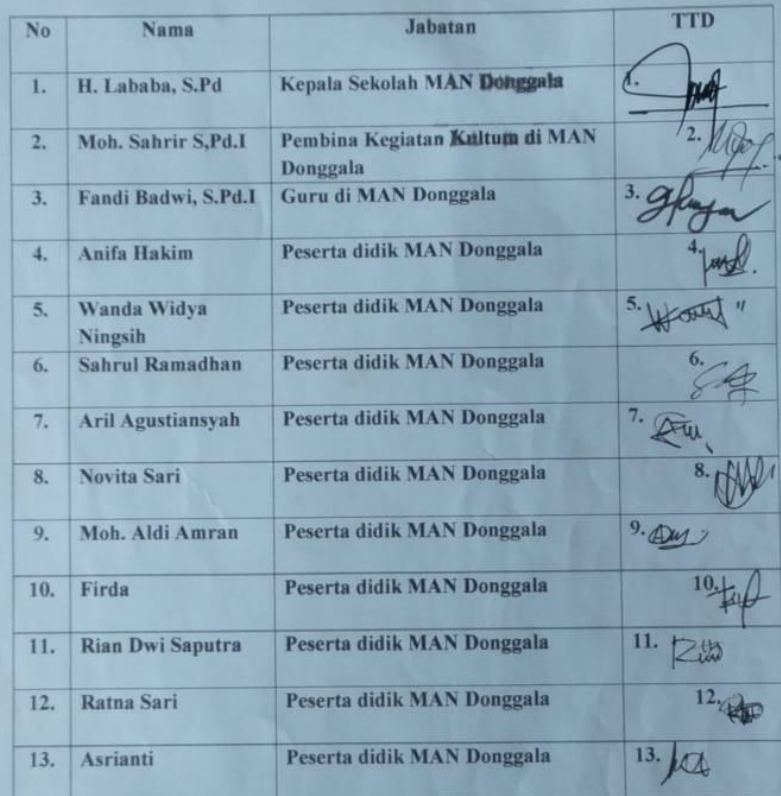 No Nama Jabatan TTD
1. H. Lababa, S.Pd Kepala Sekolah MAN Donggala 1.
2. Moh. Sahrir S,Pd.I Pembina Kegiatan Kultum di MAN 2.
Donggala
3. Fandi Badwi, S.Pd.I Guru di MAN Donggala 3.
4. Anifa Hakim Peserta didik MAN Donggala 4.
5. Wanda Widya Peserta didik MAN Donggala 5.
Ningsih
6. Sahrul Ramadhan Peserta didik MAN Donggala 6.
7. Aril Agustiansyah Peserta didik MAN Donggala 7.
8. Novita Sari Peserta didik MAN Donggala 8.
9. Moh. Aldi Amran Peserta didik MAN Donggala 9.
10. Firda Peserta didik MAN Donggala 10.
11. Rian Dwi Saputra Peserta didik MAN Donggala 11.
12. Ratna Sari Peserta didik MAN Donggala 12.
13. Asrianti Peserta didik MAN Donggala 13.